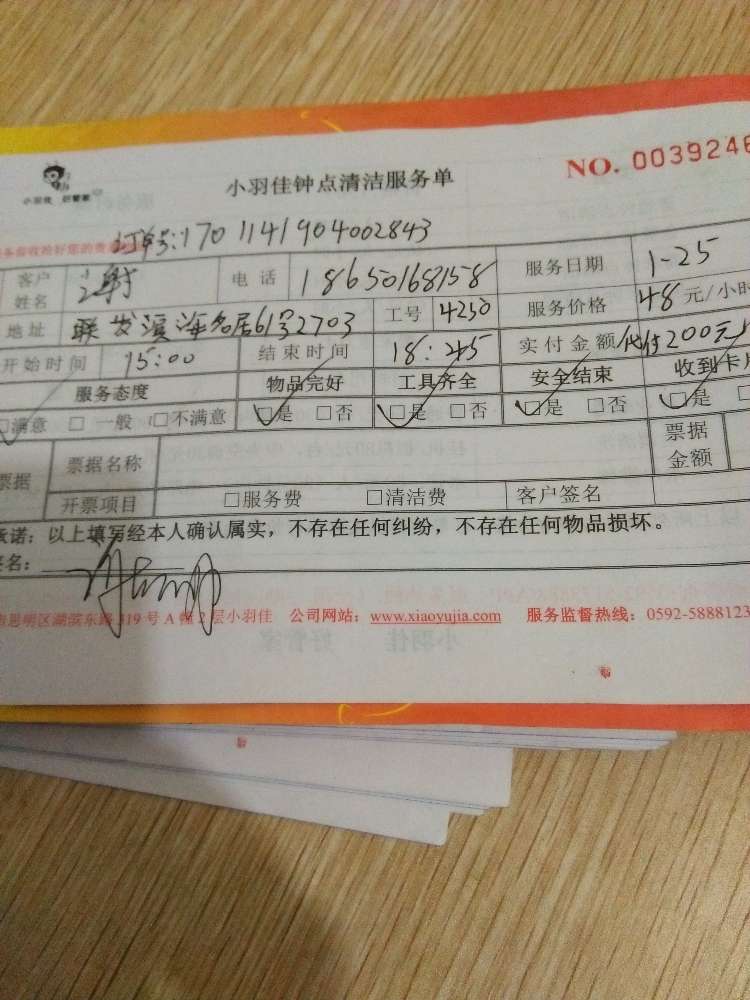 小羽佳 好管家
小羽佳钟点清洁服务单 NO. 0039246
订单号:1701141904002843
客户姓名 谢 电话 18650168158 服务日期 1-25
地址 联发滨海名居61号2703 工号 4250 服务价格 48元/小时
开始时间 15:00 结束时间 18:45 实付金额 代付200元
服务态度 物品完好 工具齐全 安全结束 收到卡片
☑满意 □一般 □不满意 ☑是 □否 ☑是 □否 ☑是 □否 ☑是
票据 票据名称 票据金额
开票项目 □服务费 □清洁费 客户签名
承诺：以上填写经本人确认属实，不存在任何纠纷，不存在任何物品损坏。
签名：
市思明区湖滨东路319号A幢2层小羽佳 公司网站：www.xiaoyujia.com 服务监督热线：0592-5888123